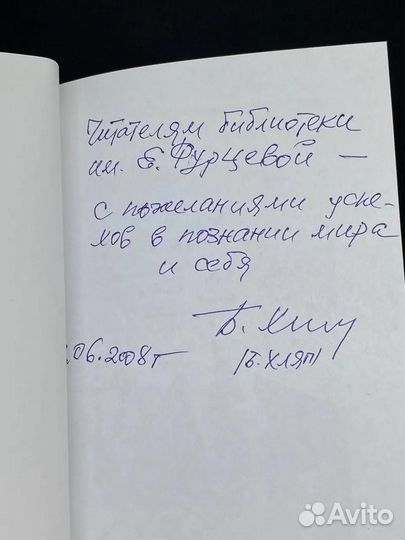 Читателям библиотеки
им. Е. Фурцевой —
с пожеланиями успе-
хов в познании мира
и себя
.06.2008г
Avito